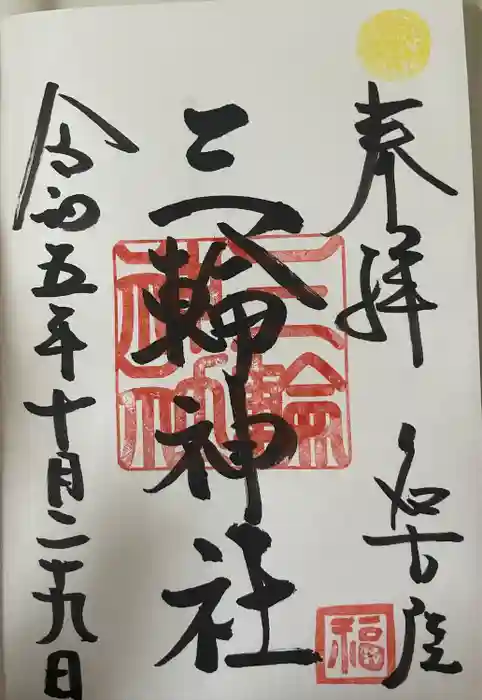 奉拝
名古屋
三輪神社
三輪神社
福
令和五年十月二十九日